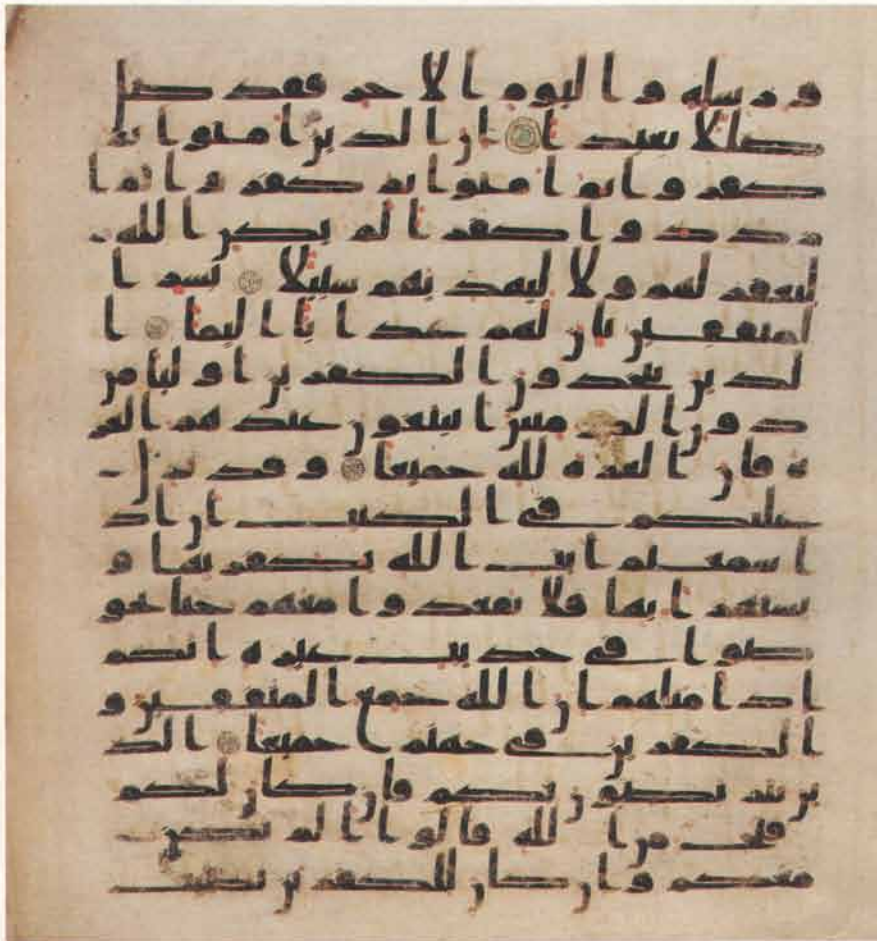 ورسله واليوم الاخر فقد ضل
ضللا بعيدا ان الذين امنوا ثم
كفروا ثم امنوا ثم كفروا ثم ا
زدادوا كفرا لم يكن الله
ليغفر لهم ولا ليهديهم سبيلا بشر ا
لمنفقين بان لهم عذابا اليما ا
لذين يتخذون الكفرين اوليا من
دون المومنين ايبتغون عندهم العز
ة فان العزة لله جميعا وقد نزل
عليكم في الكتب ان اذ
ا سمعتم ايت الله يكفر بها و
يستهزا بها فلا تقعدوا معهم حتى يخو
ضوا في حديث غيره انكم
اذا مثلهم ان الله جمع المنفقين و
الكفرين في جهنم جميعا الذ
ين يتربصون بكم فان كان لكم
فتح من الله قالوا الم نكن
معكم وان كان للكفرين نصيب